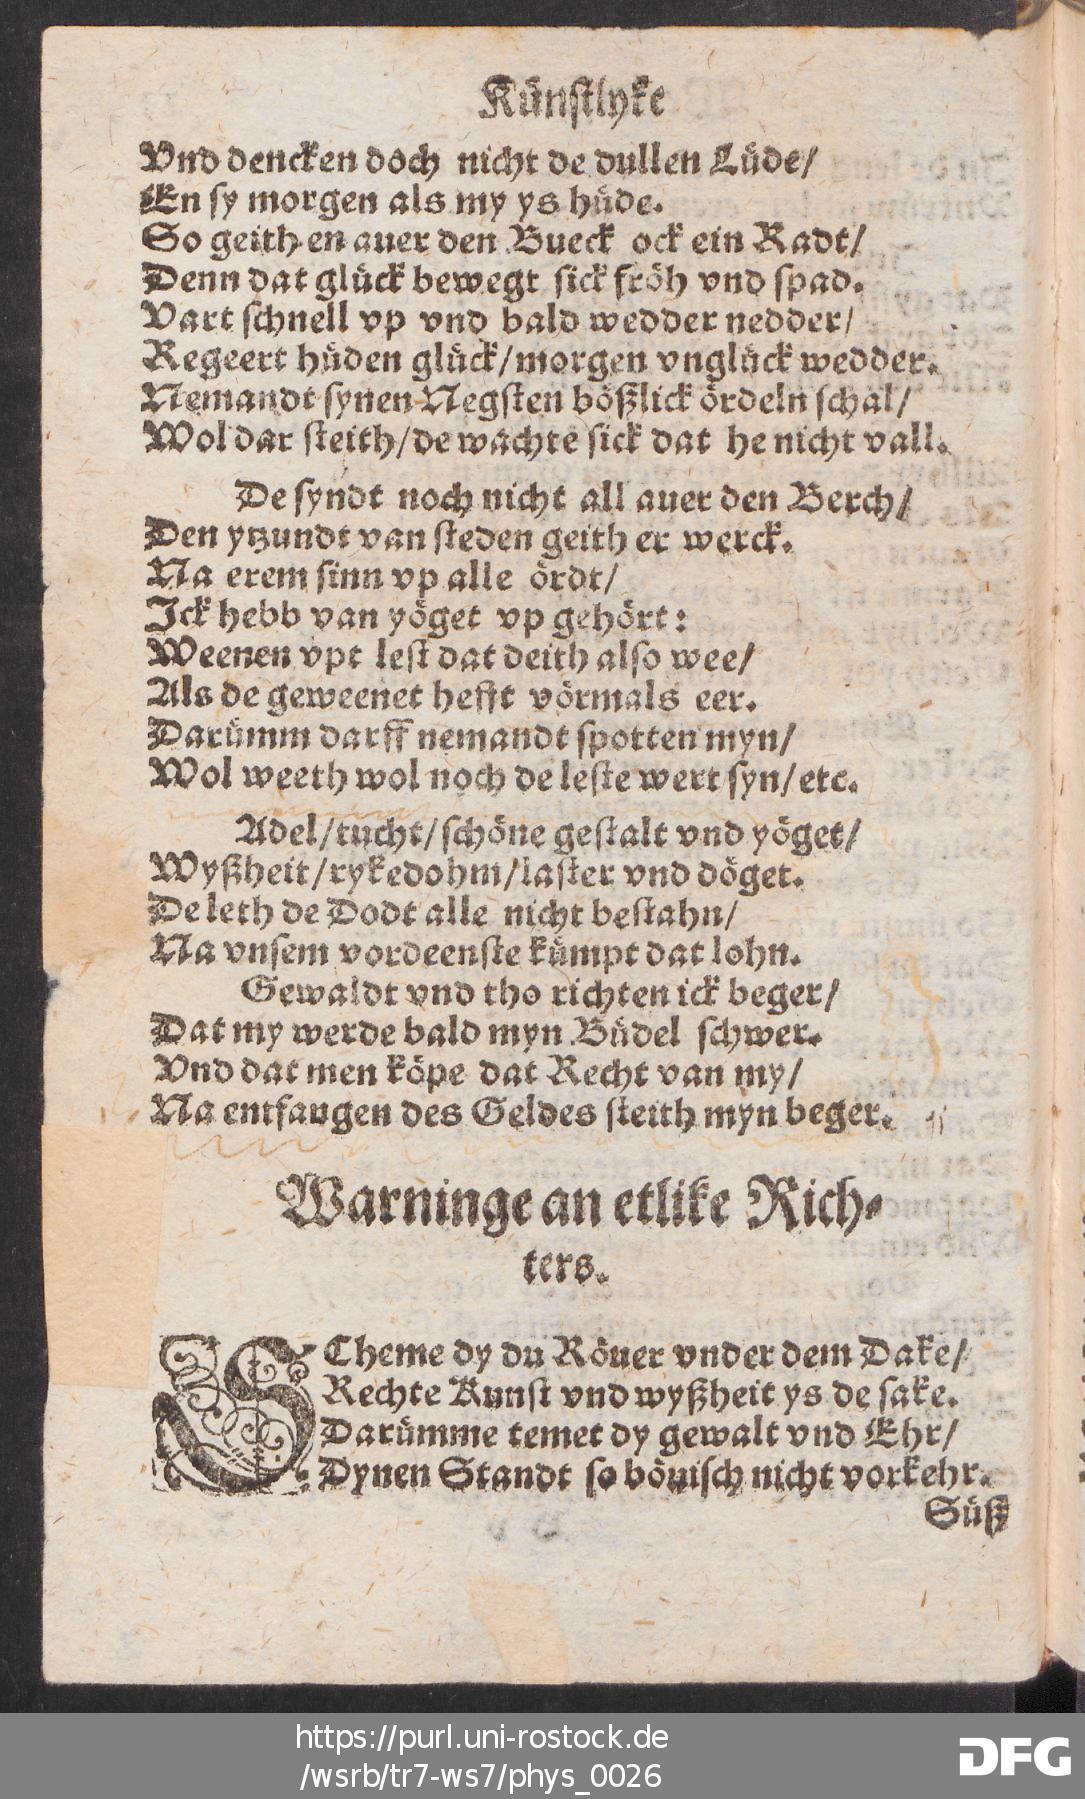 Künstlyke
Vnd dencken doch nicht de dullen Lüde/
En sy morgen als my ys hüde.
So geith en auer den Bueck ock ein Radt/
Denn dat glück bewegt sick fröh vnd spad.
Vart schnell vp vnd bald wedder nedder/
Regeert hüden glück/morgen vnglück wedder.
Nemandt synen Negsten bößlick ördeln schal/
Wol dar steith/de wachte sick dat he nicht vall.
De syndt noch nicht all auer den Berch/
Den ytzundt van steden geith er werck.
Na erem sinn vp alle ördt/
Ick hebb van yöget vp gehört:
Weenen vpt lest dat deith also wee/
Als de geweenet hefft vörmals eer.
Darümm darff nemandt spotten myn/
Wol weeth wol noch de leste wert syn/etc.
Adel/tucht/schöne gestalt vnd yöget/
Wyßheit/rykedohm/laster vnd döget.
De leth de Dodt alle nicht bestahn/
Na vnsem vordeenste kümpt dat lohn.
Gewaldt vnd tho richten ick beger/
Dat my werde bald myn Büdel schwer.
Vnd dat men köpe dat Recht van my/
Na entfangen des Geldes steith myn beger.
Warninge an etlike Rich-
ters.
SCheme dy du Röuer vnder dem Dake/
Rechte Kunst vnd wyßheit ys de sake.
Darümme temet dy gewalt vnd Ehr/
Dynen Standt so böuisch nicht vorkehr.
Süß
https://purl.uni-rostock.de
/wsrb/tr7-ws7/phys_0026
DFG